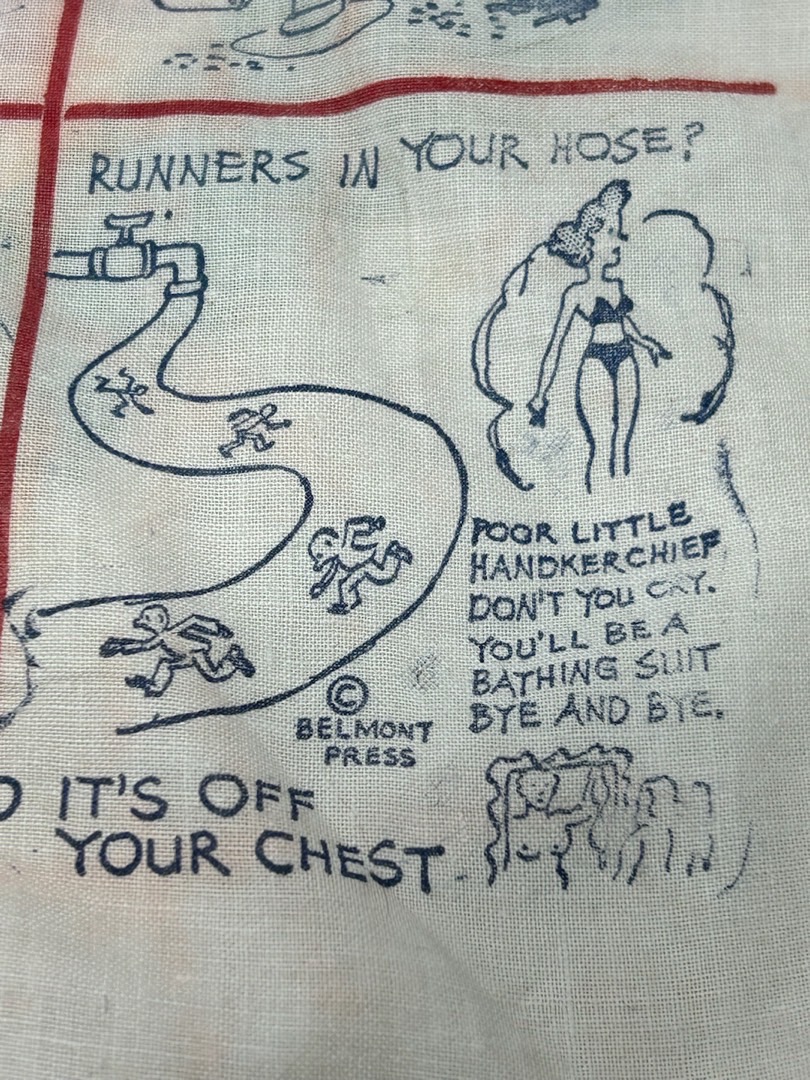 RUNNERS IN YOUR HOSE?
POOR LITTLE
HANDKERCHIEF
DON'T YOU CRY.
YOU'LL BE A
BATHING SUIT
BYE AND BYE.
©
BELMONT
PRESS
IT'S OFF
YOUR CHEST.